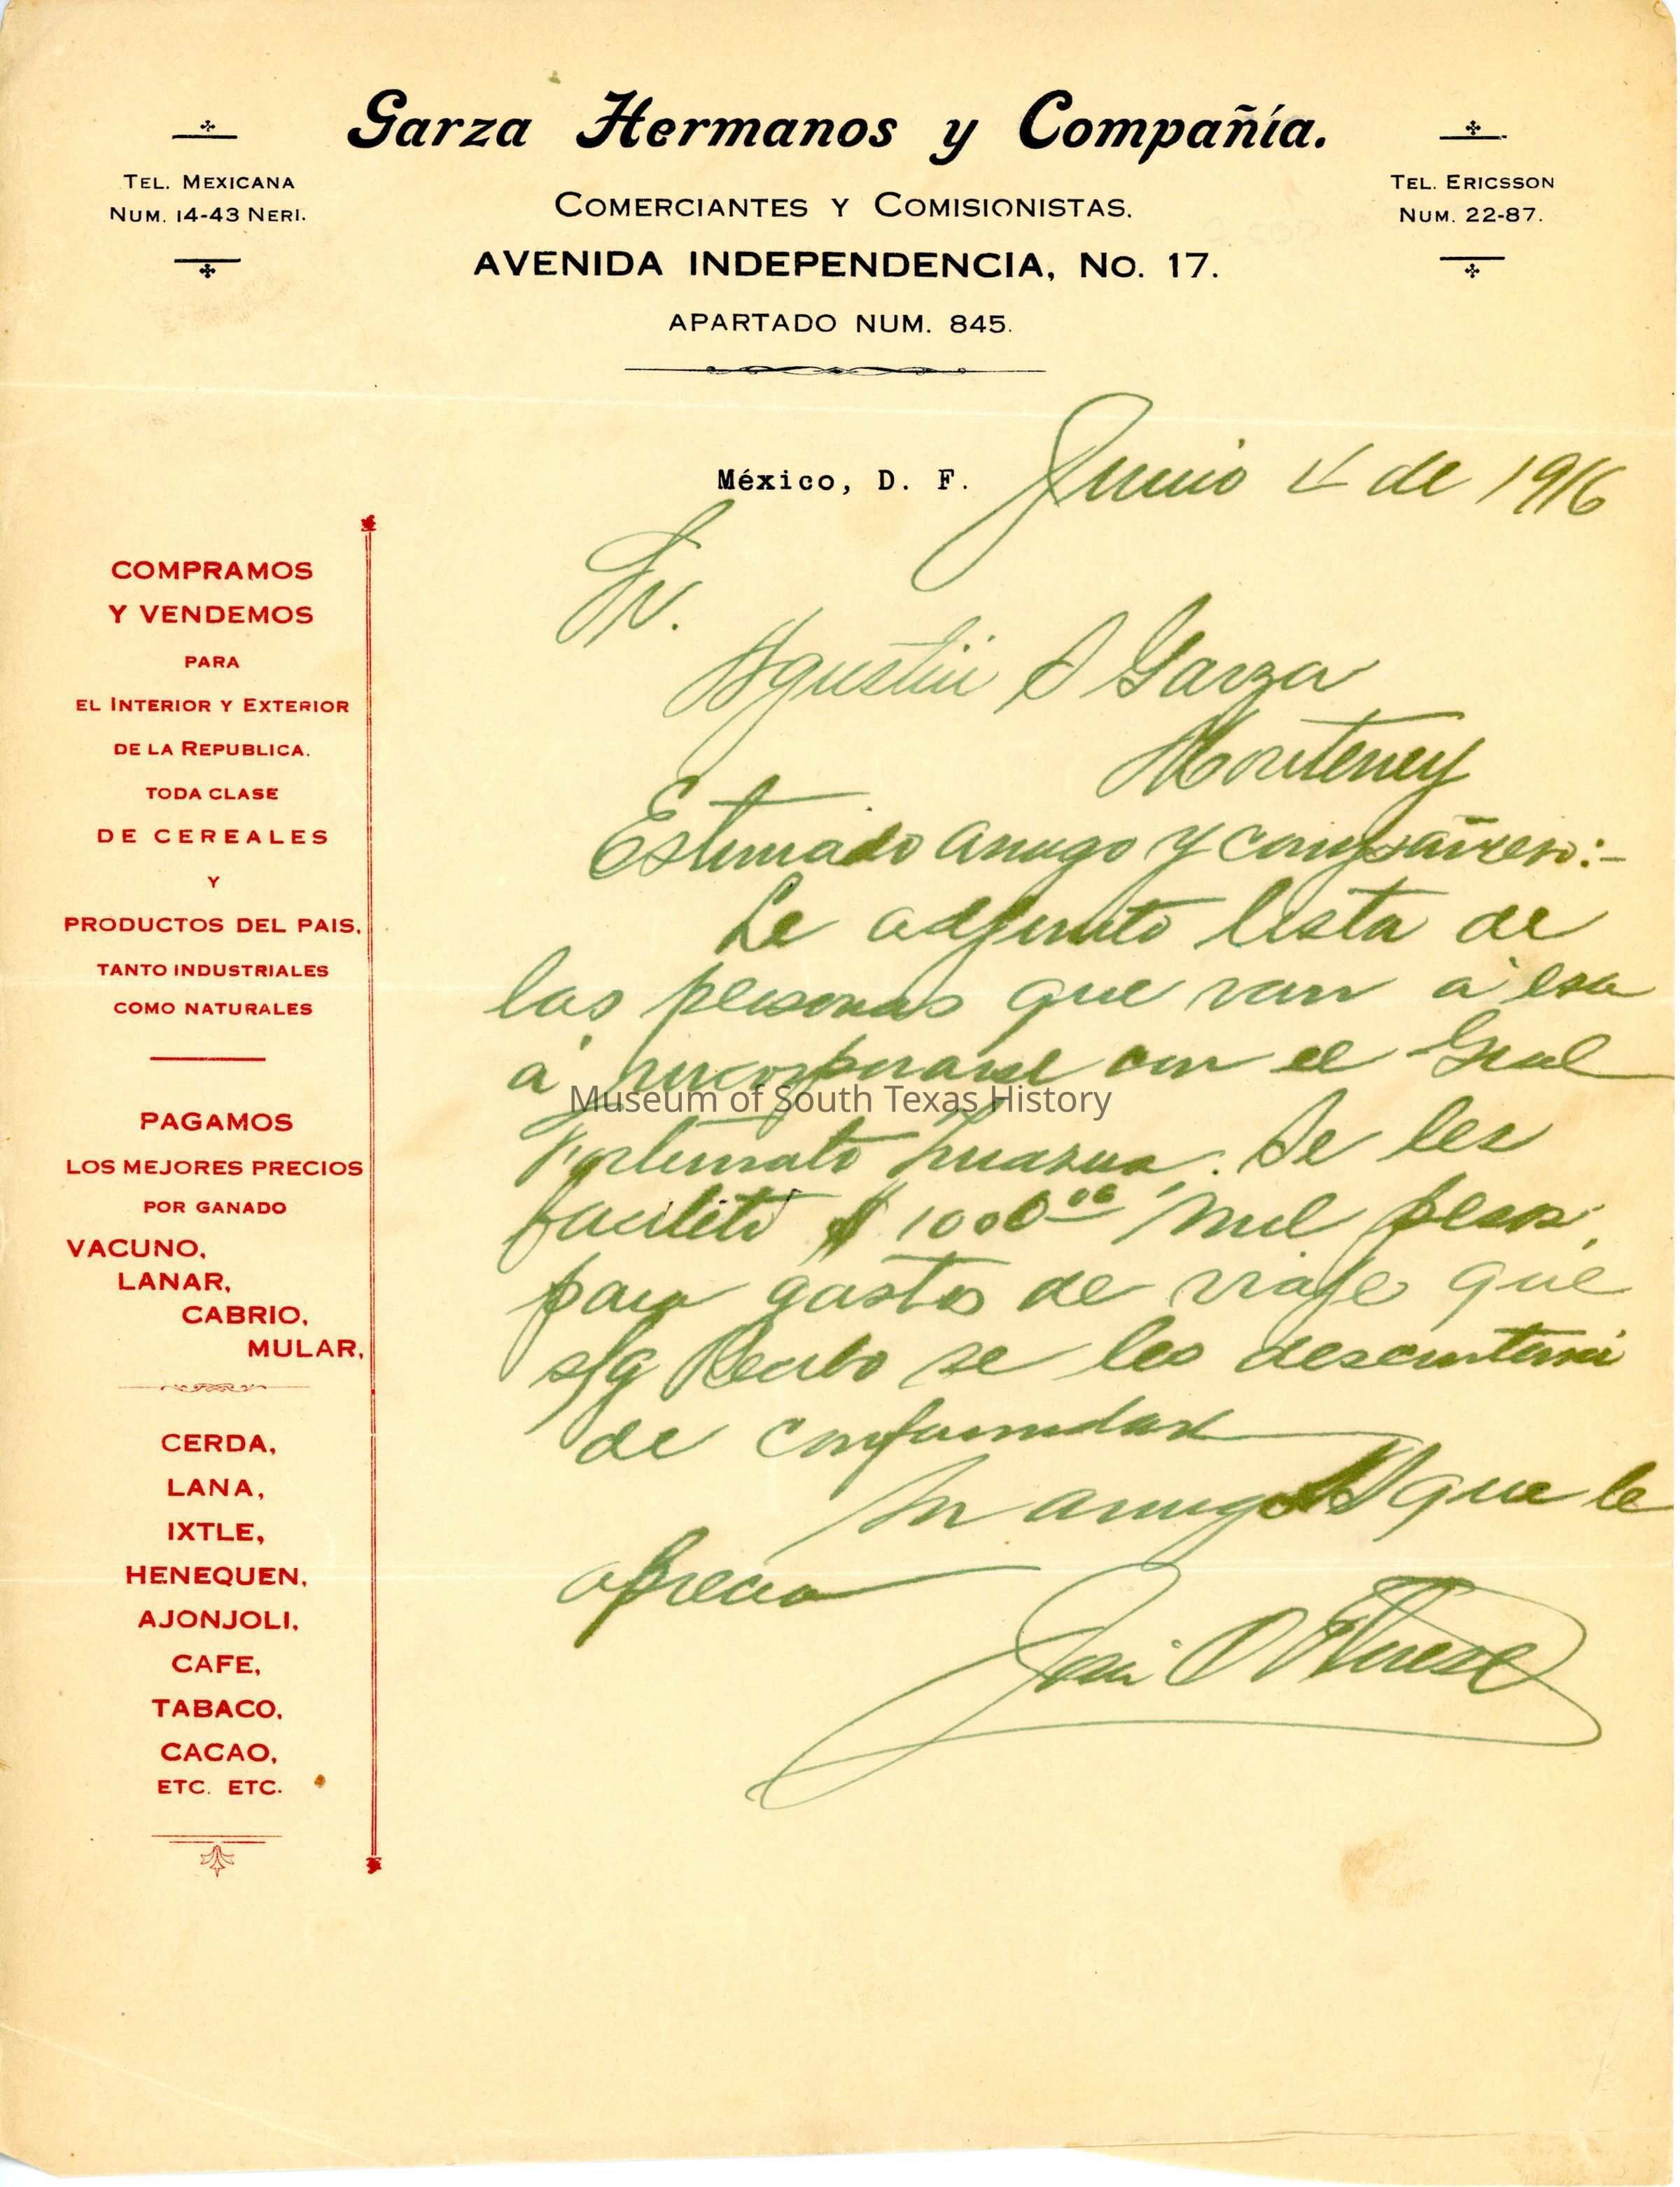 Garza Hermanos y Compañía.
TEL. MEXICANA
NUM. 14-43 NERI.
COMERCIANTES Y COMISIONISTAS.
TEL. ERICSSON
NUM. 22-87.
AVENIDA INDEPENDENCIA, No. 17.
APARTADO NUM. 845.
México, D. F. Junio 4 de 1916
Sr.
Agustin S Garza
Monterrey
Estimado amigo y compañero:-
Le adjunto lista de
las personas que van a esa
á incorporarse con el Gral
Fortunato Zuazua. Se les
facilitó $ 1000 00 Mil pesos,
para gastos de viaje que
s/g Recibo se les descontará
de conformidad
Su amigo que le
aprecia
COMPRAMOS
Y VENDEMOS
PARA
EL INTERIOR Y EXTERIOR
DE LA REPUBLICA.
TODA CLASE
DE CEREALES
Y
PRODUCTOS DEL PAIS,
TANTO INDUSTRIALES
COMO NATURALES
PAGAMOS
LOS MEJORES PRECIOS
POR GANADO
VACUNO,
LANAR,
CABRIO,
MULAR,
CERDA,
LANA,
IXTLE,
HENEQUEN,
AJONJOLI,
CAFE,
TABACO,
CACAO,
ETC. ETC.
Museum of South Texas History